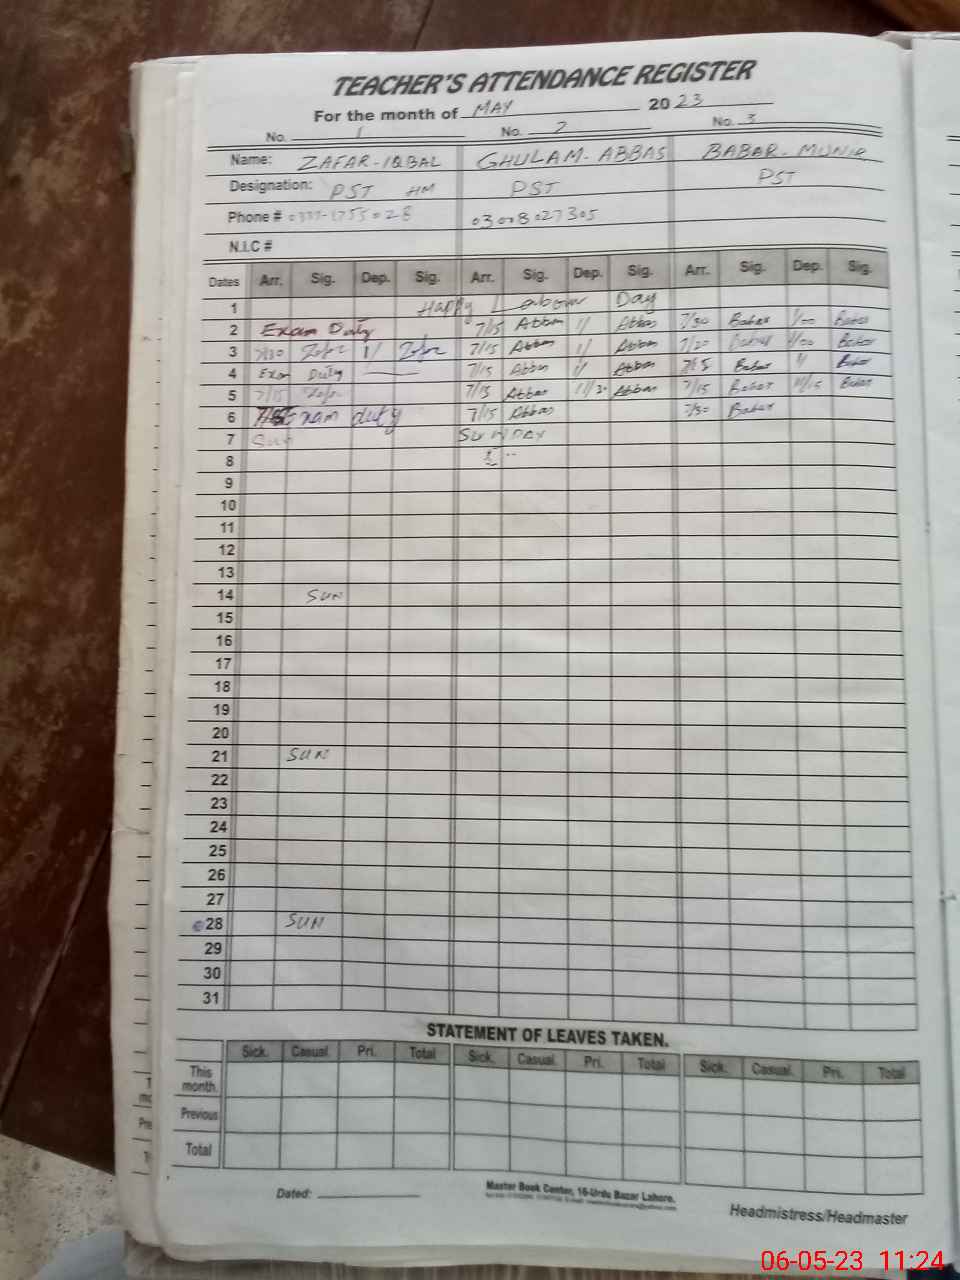 TEACHER'S ATTENDANCE REGISTER
For the month of MAY 2023
No. 1 No. 2 No. 3
Name: ZAFAR-IQBAL GHULAM-ABBAS BABAR-MUNIR
Designation: PST HM PST PST
Phone # 03008027305
N.I.C #
Dates Arr. Sig. Dep. Sig. Arr. Sig. Dep. Sig. Arr. Sig. Dep. Sig.
1 Happy Labour Day
2 Exam Duty 7/15 Abbas 1/ Abbas 7/30 Babar 1/00 Babar
3 7/30 Zafar 1/ Zafar 7/15 Abbas 1/ Abbas 7/20 Babar 1/00 Babar
4 Exam Duty 7/15 Abbas 1/ Abbas 7/15 Babar 1/ Babar
5 7/15 Zafar 7/15 Abbas 11/30 Abbas 7/15 Babar 11/15 Babar
6 Exam duty 7/15 Abbas 7/30 Babar
7 Sun SUNDAY
8
9
10
11
12
13
14 SUN
15
16
17
18
19
20
21 SUN
22
23
24
25
26
27
28 SUN
29
30
31
STATEMENT OF LEAVES TAKEN.
Sick. Casual. Pri. Total Sick. Casual. Pri. Total Sick. Casual. Pri. Total
This month.
Previous
Total
Dated:
Master Book Center, 16-Urdu Bazar Lahore.
Headmistress/Headmaster
06-05-23 11:24